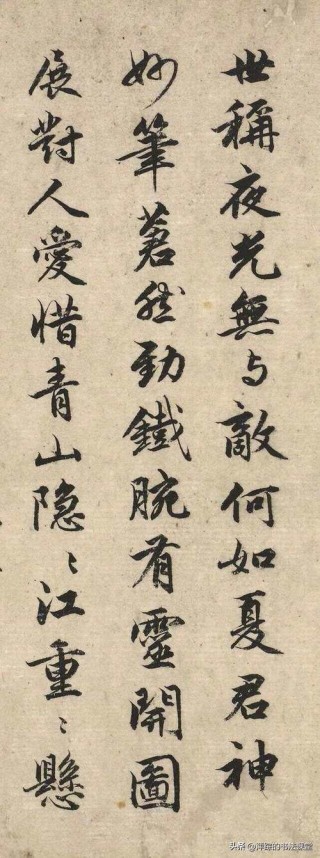 世稱夜光無与敵何如夏君神
妙筆蒼然勁鐵腕有靈開圖
展對人愛惜青山隐〻江重〻懸
头条@萍踪的书法课堂